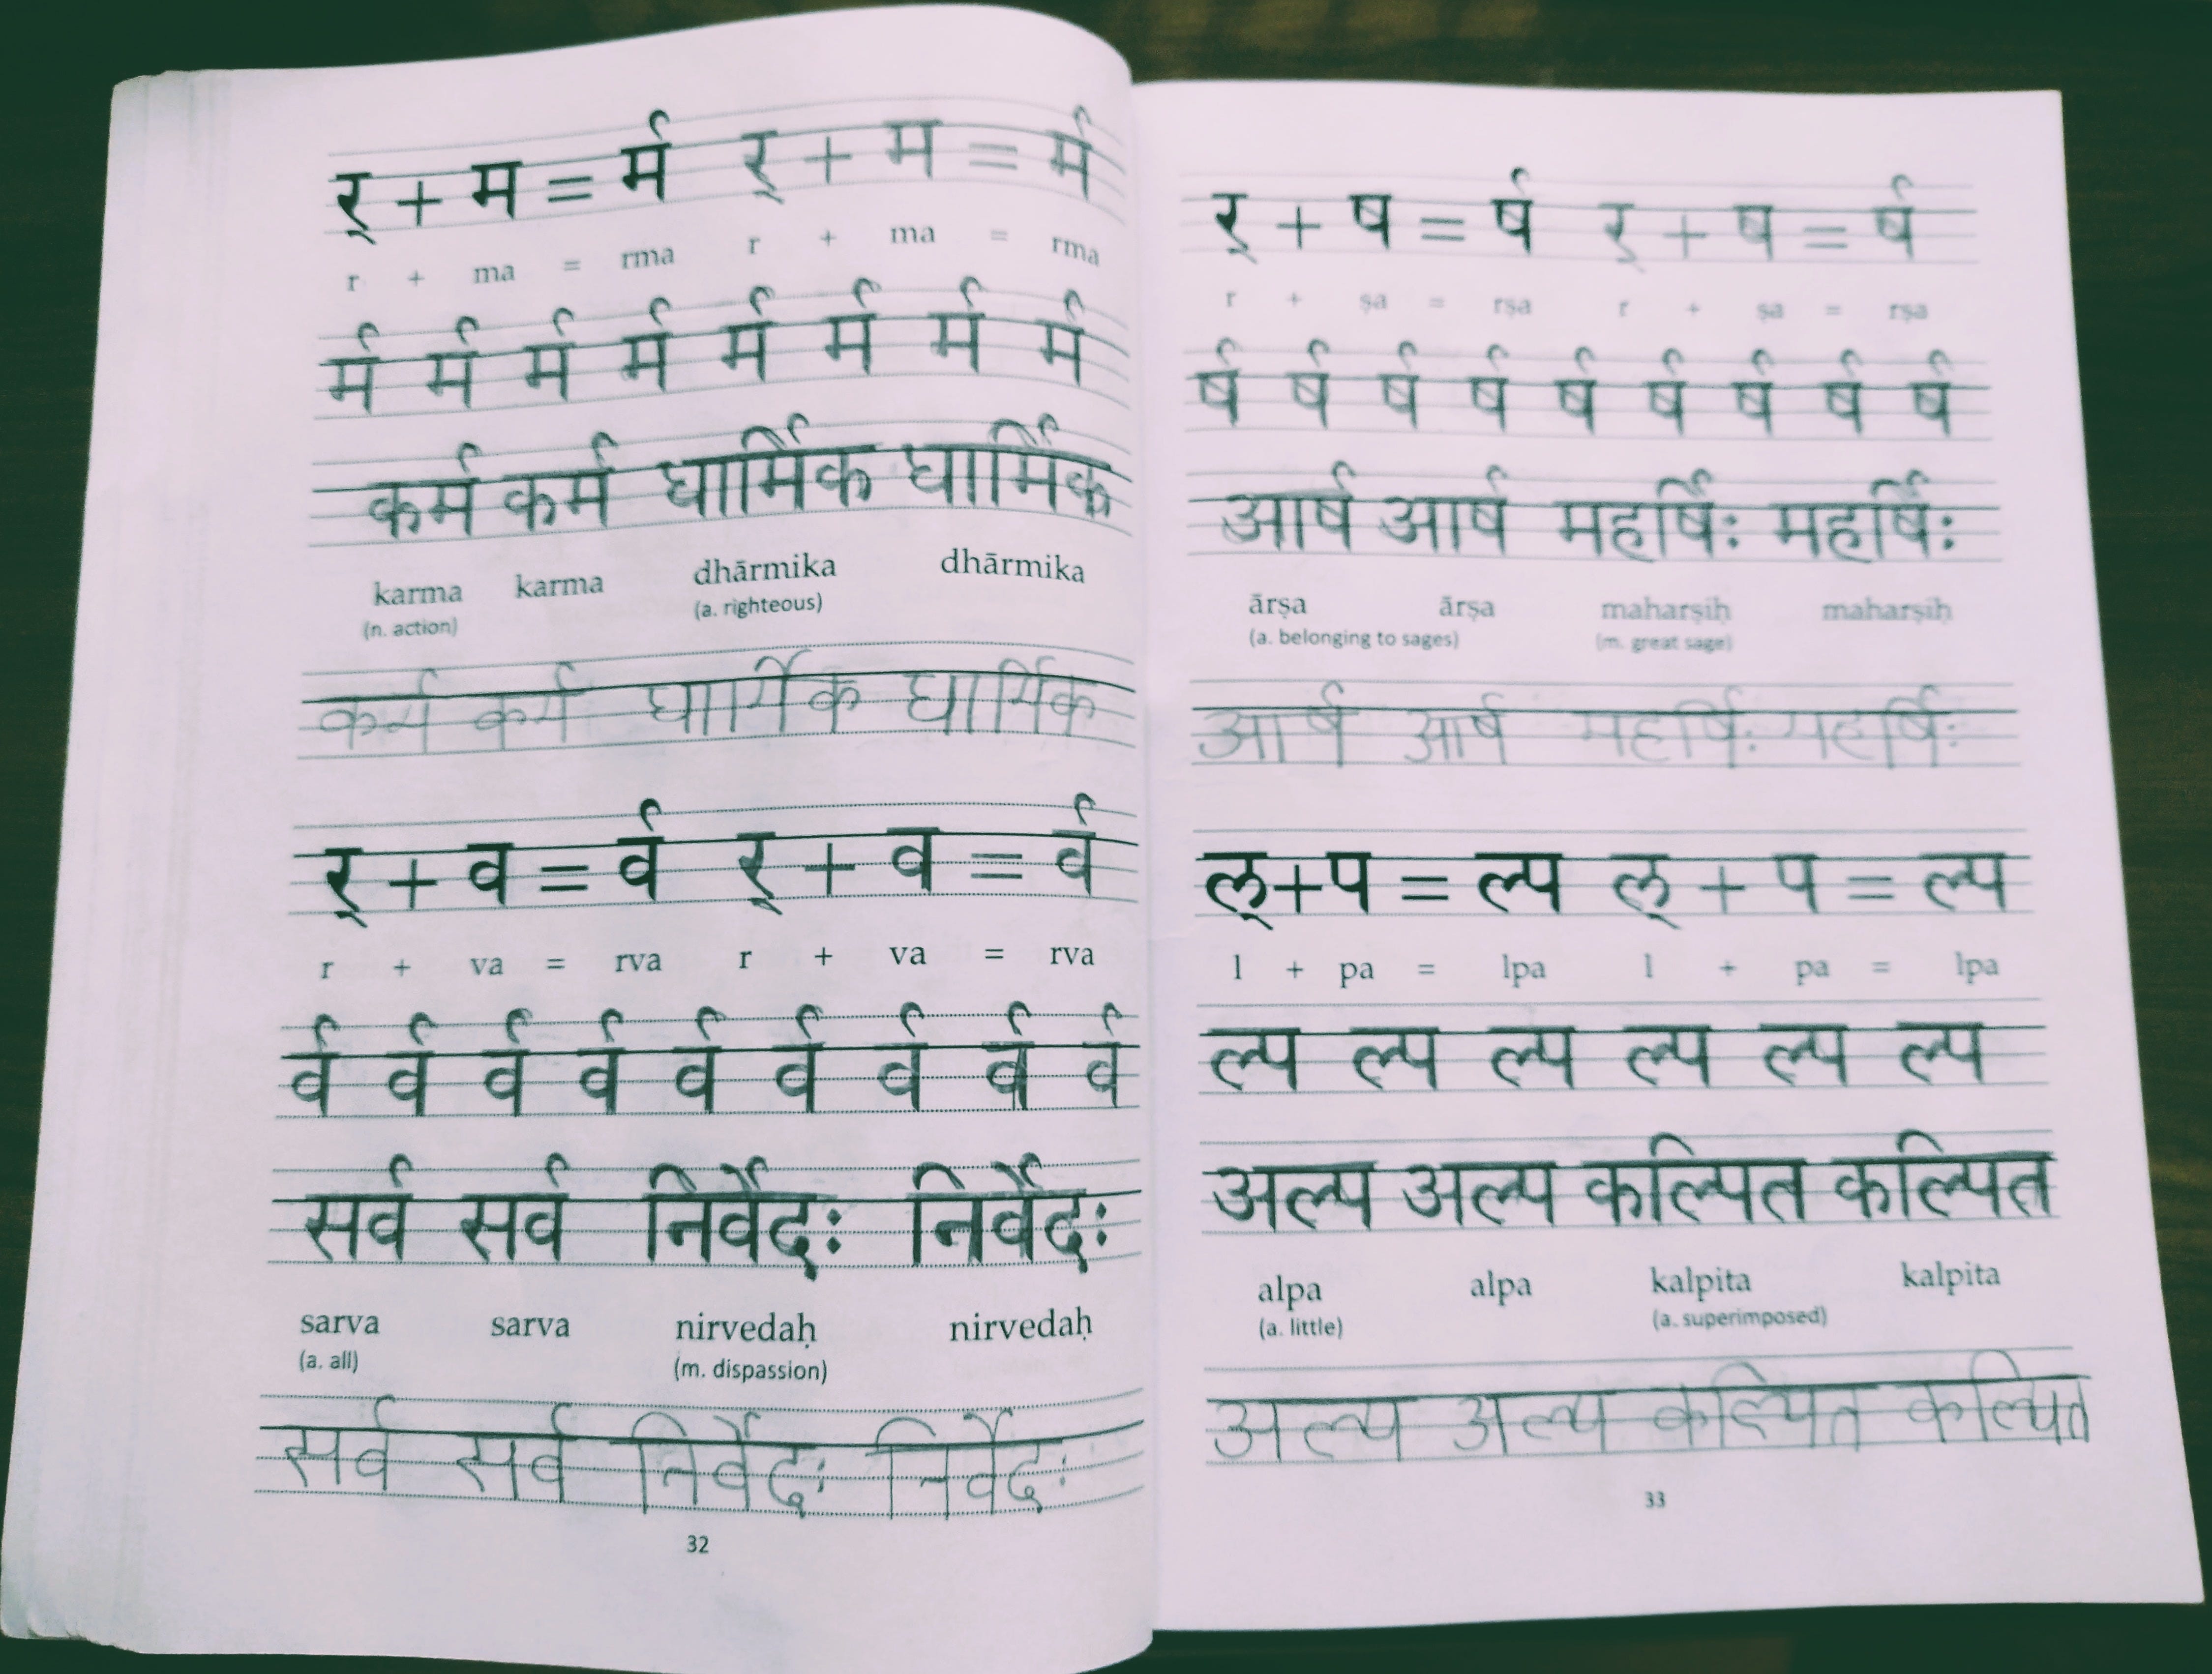 र् + म = र्म र् + म = र्म
r + ma = rma r + ma = rma
र्म र्म र्म र्म र्म र्म र्म र्म
कर्म कर्म धार्मिक धार्मिक
karma karma dhārmika dhārmika
(n. action) (a. righteous)
कर्म कर्म धार्मिक धार्मिक
र् + व = र्व र् + व = र्व
r + va = rva r + va = rva
र्व र्व र्व र्व र्व र्व र्व र्व र्व
सर्व सर्व निर्वेदः निर्वेदः
sarva sarva nirvedaḥ nirvedaḥ
(a. all) (m. dispassion)
सर्व सर्व निर्वेदः निर्वेदः
32
र् + ष = र्ष र् + ष = र्ष
r + ṣa = rṣa r + ṣa = rṣa
र्ष र्ष र्ष र्ष र्ष र्ष र्ष र्ष र्ष
आर्ष आर्ष महर्षिः महर्षिः
ārṣa ārṣa maharṣiḥ maharṣiḥ
(a. belonging to sages) (m. great sage)
आर्ष आर्ष महर्षिः महर्षिः
ल् + प = ल्प ल् + प = ल्प
l + pa = lpa l + pa = lpa
ल्प ल्प ल्प ल्प ल्प ल्प
अल्प अल्प कल्पित कल्पित
alpa alpa kalpita kalpita
(a. little) (a. superimposed)
अल्प अल्प कल्पित कल्पित
33